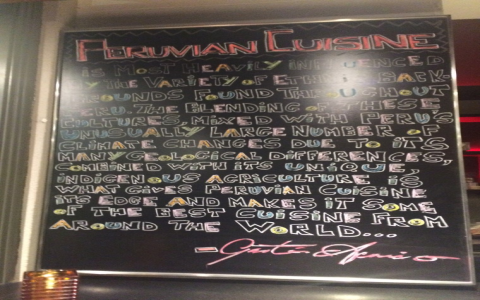 PERUVIAN CUISINE
IS MOST HEAVILY INFLUENCED
BY THE VARIETY OF ETHNIC BACK-
ROUNDS FOUND THROUGHOUT
PERU. THE BLENDING OF THESE
CULTURES, MIXED WITH PERU'S
UNUSUALLY LARGE NUMBER OF
CLIMATE CHANGES DUE TO IT'S
MANY GEOLOGICAL DIFFERENCES,
COMBINED WITH ITS UNIQUE,
INDIGENOUS AGRICULTURE. IS
WHAT GIVES PERUVIAN CUISINE
ITS EDGE AND MAKES IT SOME
OF THE BEST CUISINE FROM
AROUND THE WORLD...